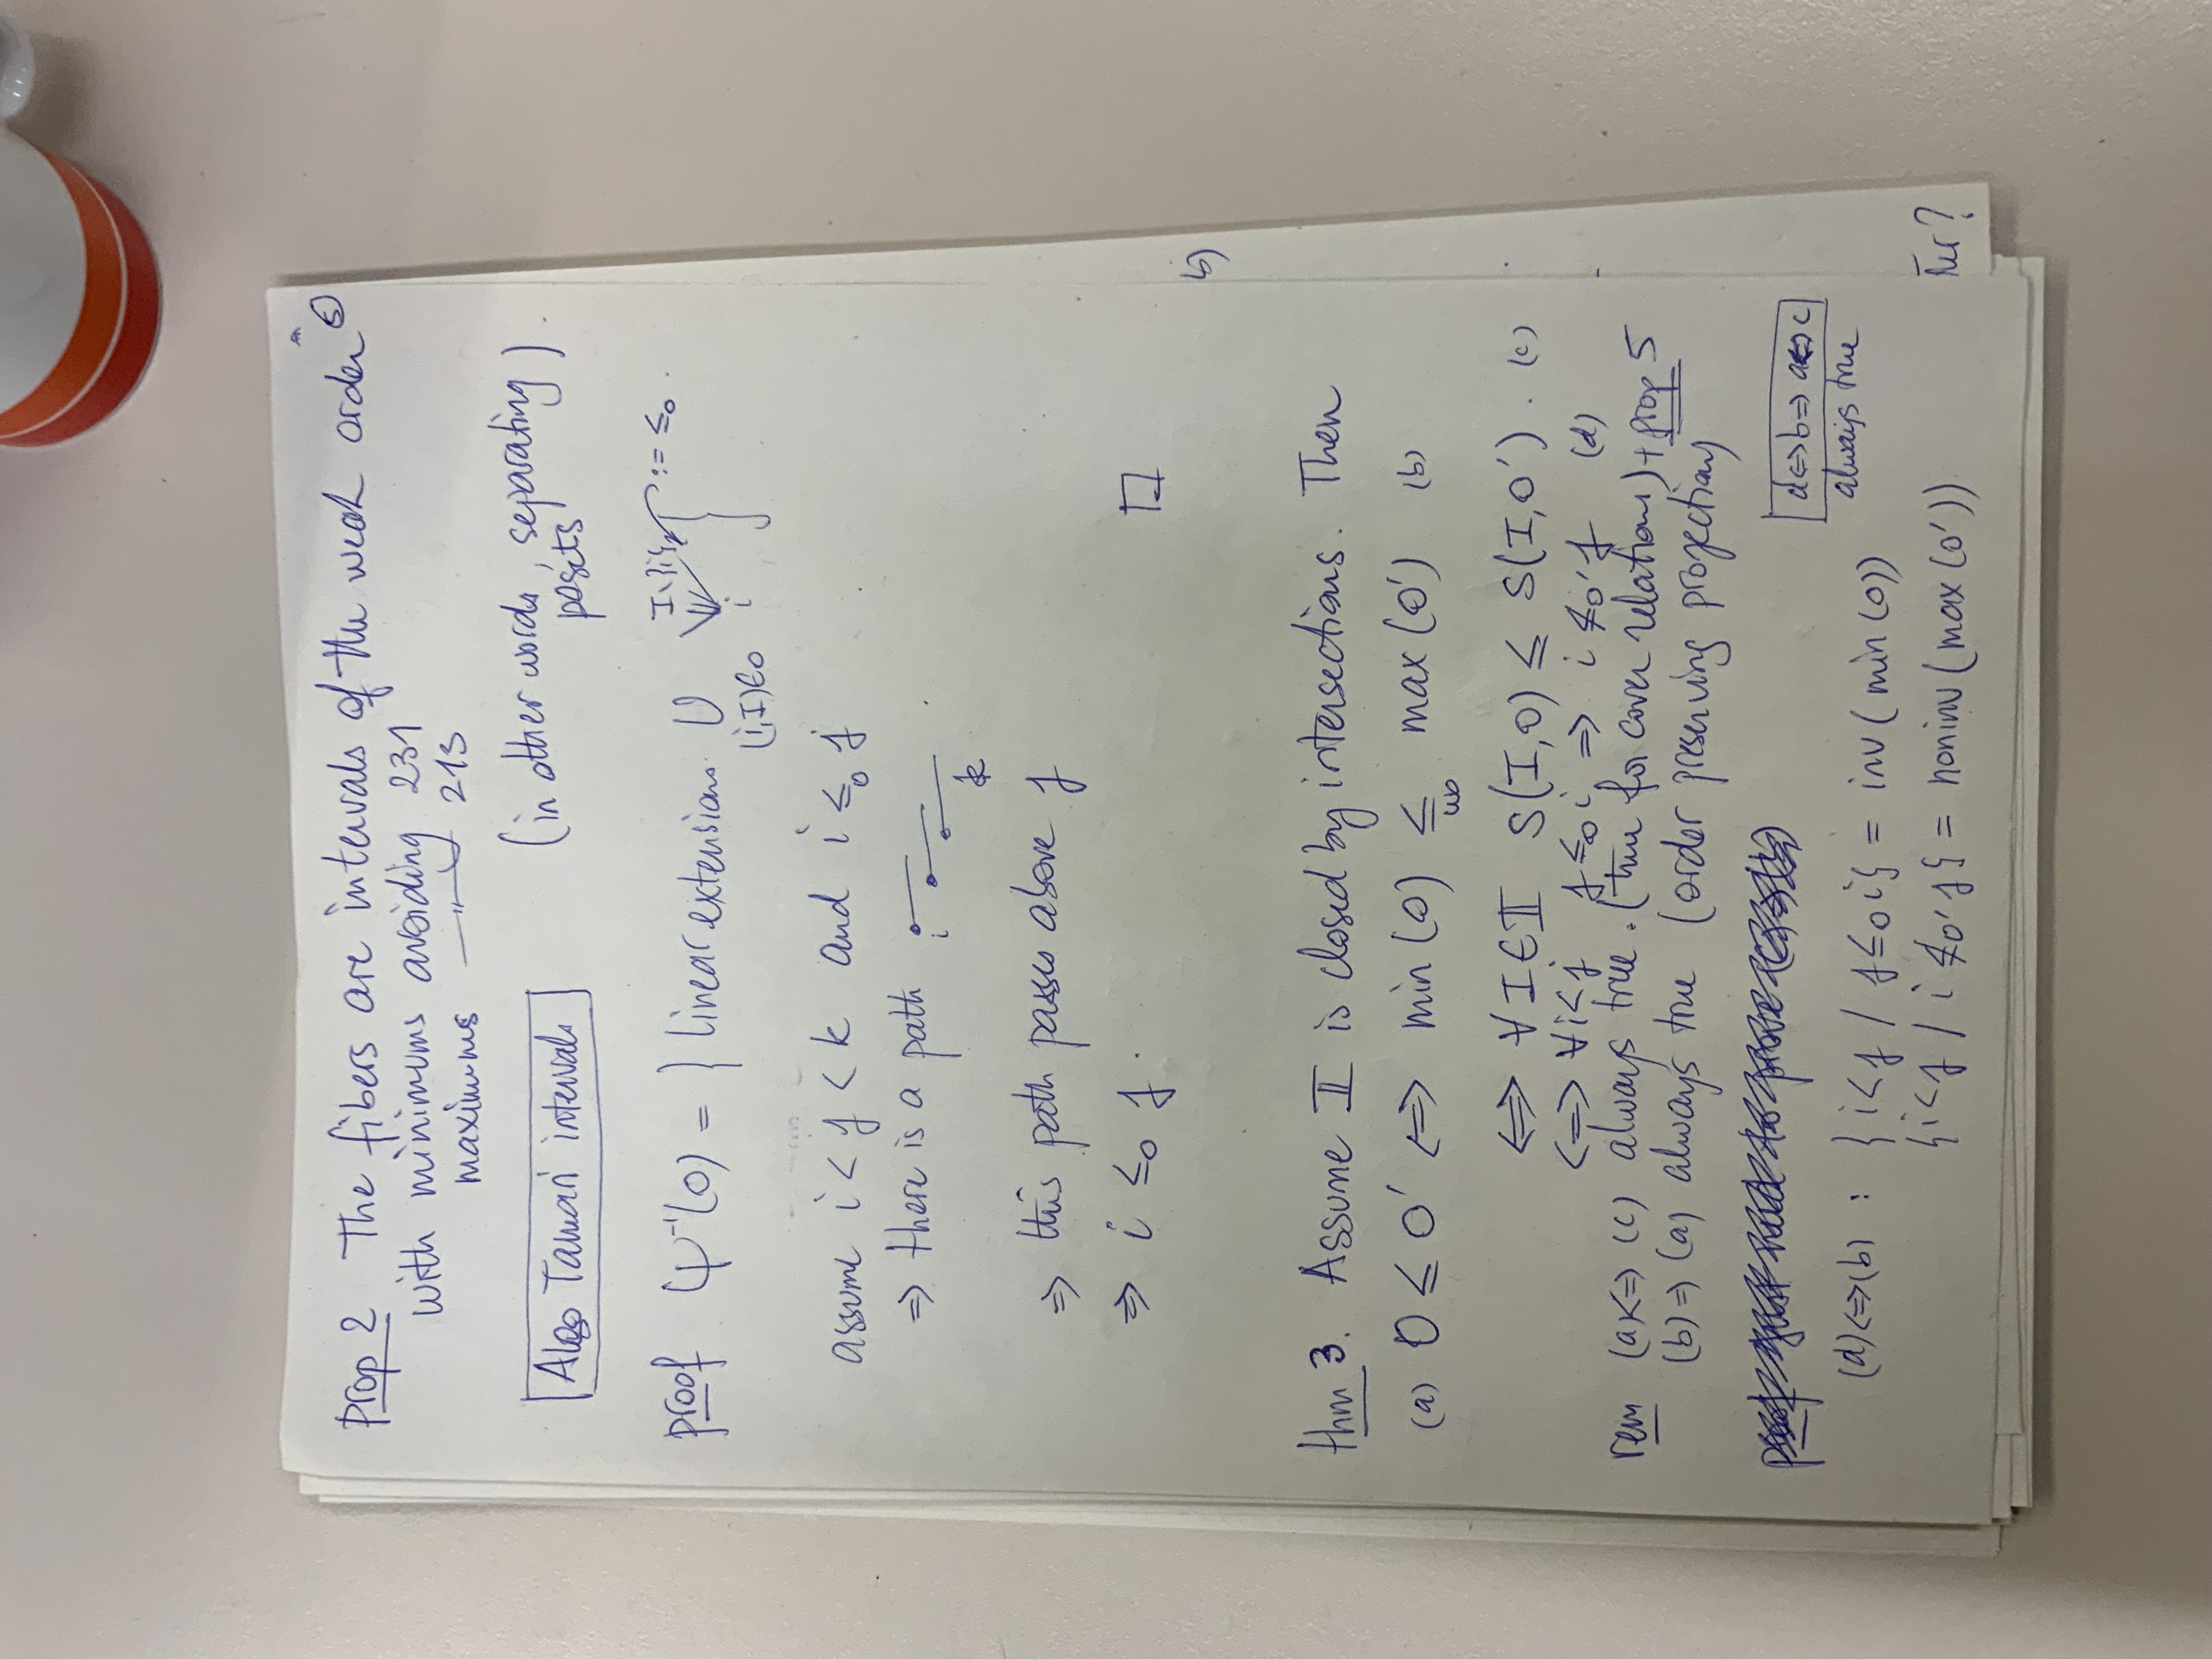 Prop 2 The fibers are intervals of the weak order ⑤
with minimums avoiding 231
maximums —"— 213
Also Tamari intervals
(in other words, separating)
posets
proof Ψ⁻¹(O) = { linear extensions ∪ (i,I)∈O I\{i} i } := ≤_O
assume i < j < k and i ≤_O k
⇒ there is a path i k
⇒ this path passes above j
⇒ i ≤_O j. □
thm 3. Assume 𝕀 is closed by intersections. Then
(a) O ≤ O' ⇔ min(O) ≤_wo max(O') (b)
⇔ ∀ I ∈ 𝕀 S(I,O) ≤ S(I,O'). (c)
⇔ ∀ i<j j ≤_O i ⇒ i ≰_O' j (d)
rem (a) ⇔ (c) always true. (true for cover relations) + prop 5
(b) ⇒ (a) always true (order preserving projection)
proof
d⇔b⇒a⇔c
always true
(d)⇔(b) : {i<j / j ≤_O i} = inv(min(O))
{i<j / i ≰_O' j} = noninv(max(O'))
b)